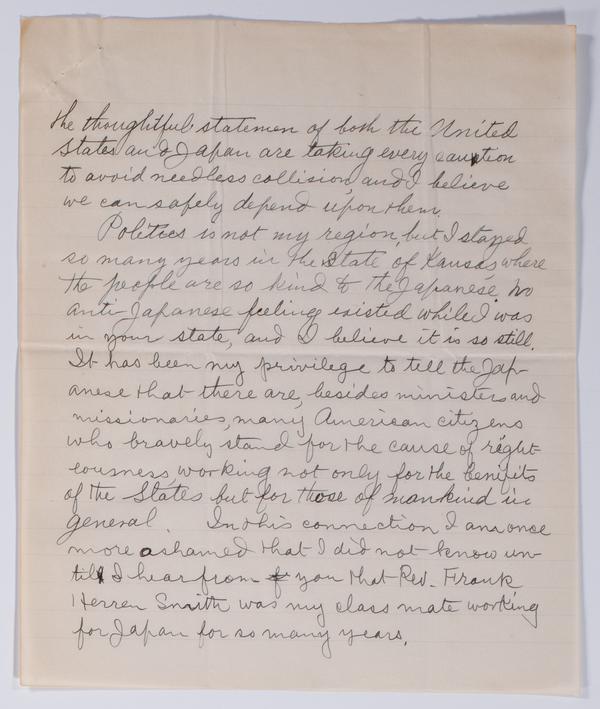 the thoughtful statemen of both the United
States and Japan are taking every caution
to avoid needless collision, and I believe
we can safely depend upon them.
Politics is not my region, but I stayed
so many years in the State of Kansas where
the people are so kind to the Japanese. No
anti-Japanese feeling existed while I was
in your state, and I believe it is so still.
It has been my privilege to tell the Jap-
anese that there are, besides ministers and
missionaries, many American citizens
who bravely stand for the cause of right-
eousness, working not only for the benifits
of the States but for those of mankind in
general. In this connection I am once
more ashamed that I did not know un-
till I hear from you that Rev. Frank
Herren Smith was my class mate working
for Japan for so many years.